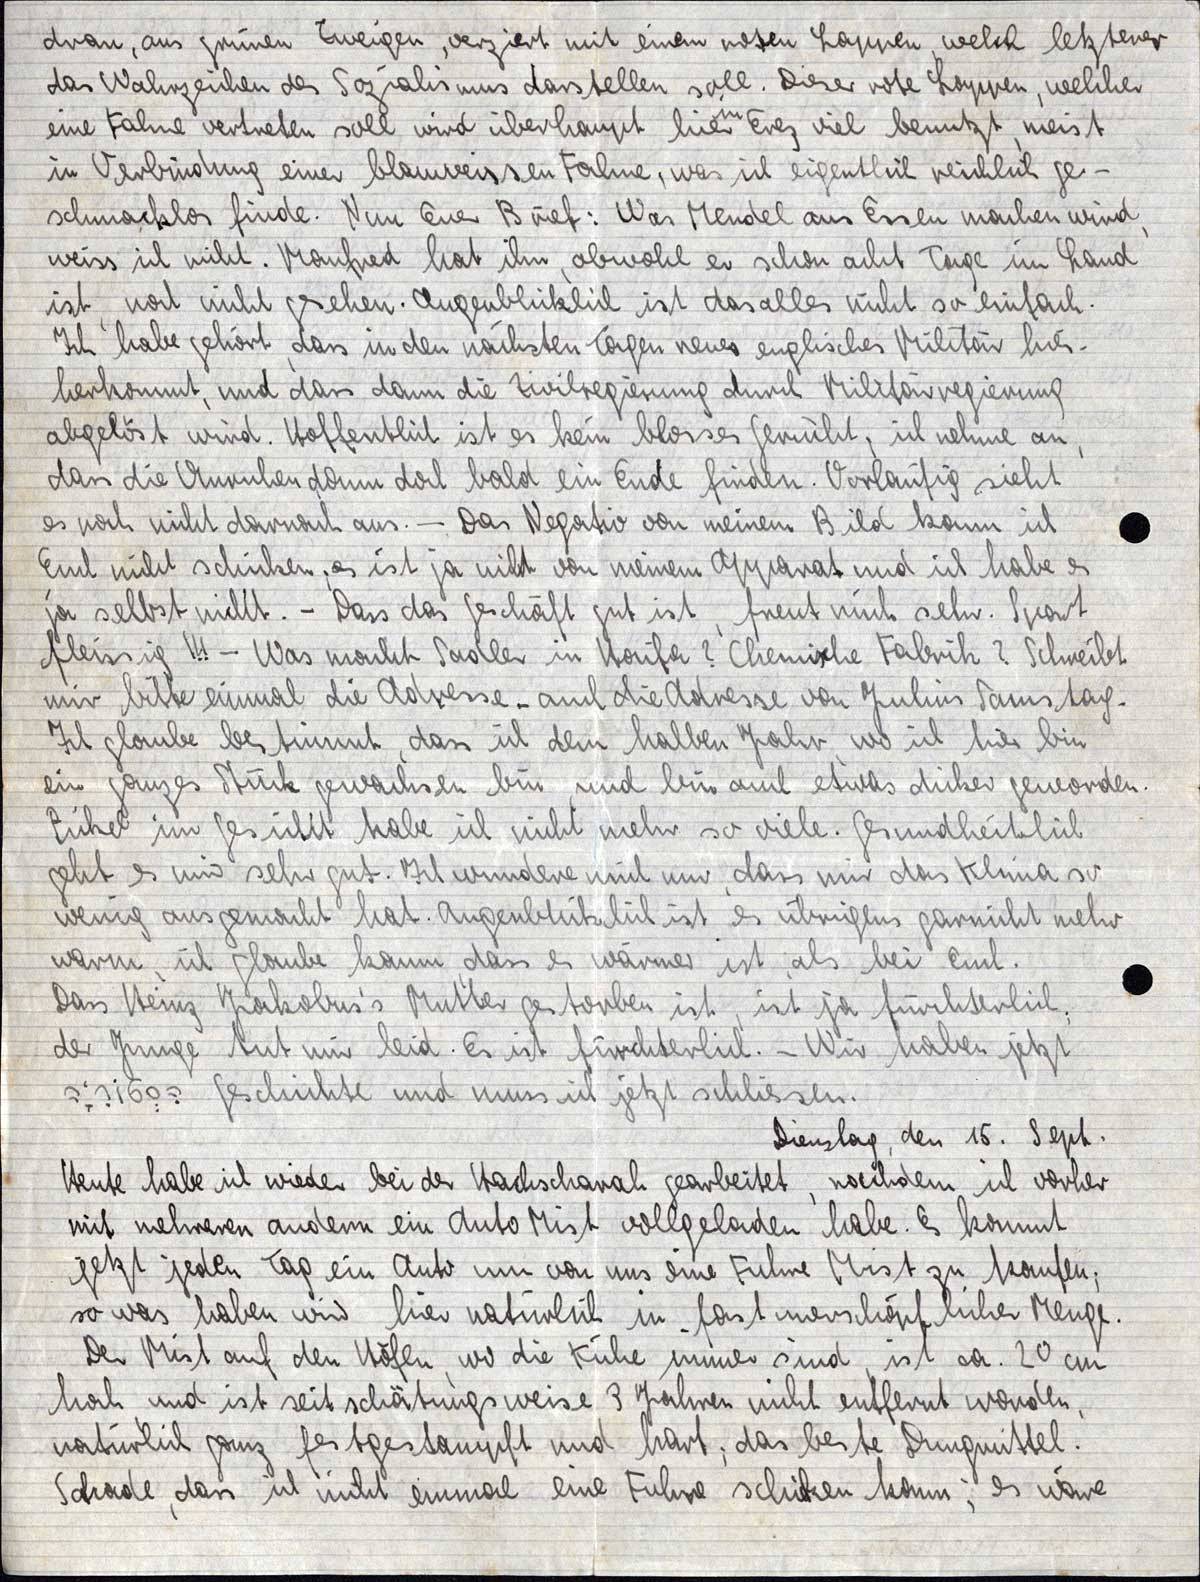 dran, aus grünen Zweigen, verziert mit einem roten Lappen, welch letzterer
das Wahrzeichen des Sozialismus darstellen soll. Dieser rote Lappen, welcher
eine Fahne vertreten soll wird überhaupt hier in Erez viel benutzt, meist
in Verbindung einer blauweissen Fahne, was ich eigentlich reichlich ge-
schmacklos finde. Nun Euer Brief: Was Mendel aus Essen machen wird,
weiss ich nicht. Manfred hat ihn, obwohl er schon acht Tage im Land
ist, noch nicht gesehen. Augenblicklich ist das alles nicht so einfach.
Ich habe gehört, dass in den nächsten Tagen neues englisches Militär hier-
herkommt, und dass dann die Zivilregierung durch Militärregierung
abgelöst wird. Hoffentlich ist es kein blosses Gerücht; ich nehme an,
dass die Unruhen dann doch bald ein Ende finden. Vorläufig sieht
es noch nicht darnach aus. — Das Negativ von meinem Bild kann ich
Euch nicht schicken, es ist ja nicht von meinem Apparat und ich habe es
ja selbst nicht. – Dass das Geschäft gut ist, freut mich sehr. Spart
fleissig!!! – Was macht Sadler in Haifa? Chemische Fabrik? Schreibt
mir bitte einmal die Adresse – auch die Adresse von Julius Samstag.
Ich glaube bestimmt, dass ich dem halben Jahr, wo ich hier bin
ein ganzes Stück gewachsen bin, und bin auch etwas dicker geworden.
Pickel im Gesicht habe ich nicht mehr so viele. Gesundheitlich
geht es mir sehr gut. Ich wundere mich nur, dass mir das Klima so
wenig ausgemacht hat. Augenblicklich ist es übrigens garnicht mehr
warm, ich glaube kaum, dass es wärmer ist, als bei Euch.
Dass Heinz Jakobus's Mutter gestorben ist, ist ja fürchterlich;
der Junge tut mir leid. Es ist fürchterlich. – Wir haben jetzt
Geschichte und muss ich jetzt schliessen.
Dienstag, den 15. Sept.
Heute habe ich wieder bei der Hachscharah gearbeitet, nachdem ich vorher
mit mehreren andern ein Auto Mist vollgeladen habe. Es kommt
jetzt jeden Tag ein Auto um von uns eine Fuhre Mist zu kaufen;
so was haben wir hier natürlich in fast unerschöpflicher Menge.
Der Mist auf den Höfen, wo die Kühe immer sind, ist ca. 20 cm
hoch und ist seit schätzungsweise 3 Jahren nicht entfernt worden,
natürlich ganz festgestampft und hart; das beste Dungmittel.
Schade, dass ich nicht einmal eine Fuhre schicken kann; es wäre